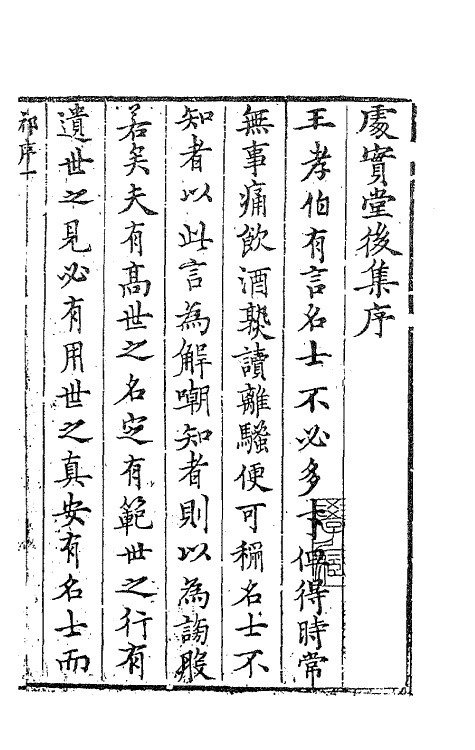 處實堂後集序
王孝伯有言名士不必多才但得時常
無事痛飲酒熟讀離騷便可稱名士不
知者以此言為解嘲知者則以為謅殷
若矣夫有高世之名定有範世之行有
遺世之見必有用世之真安有名士而
祁序一